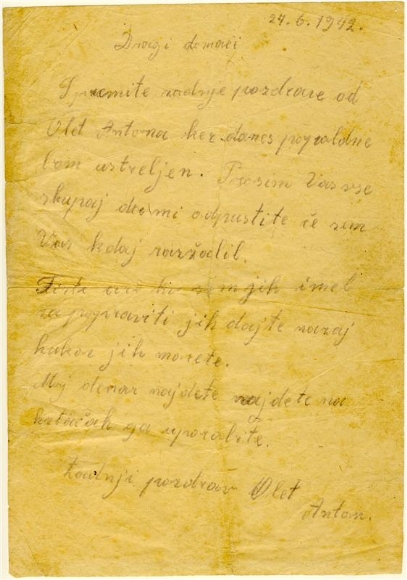 24.6.1942.
Dragi domači
Spremite zadnje pozdrave od
Olet Antona ker danes popoldne
bom ustreljen. Prosim Vas vse
skupaj da mi odpustite če sem
Vas kdaj razžalil.
ure ki sem jih imel
za popraviti jih dajte nazaj
kakor jih morete.
Moj denar najdete najdete na
ga uporabite.
Zadnji pozdrav Olet
Anton.